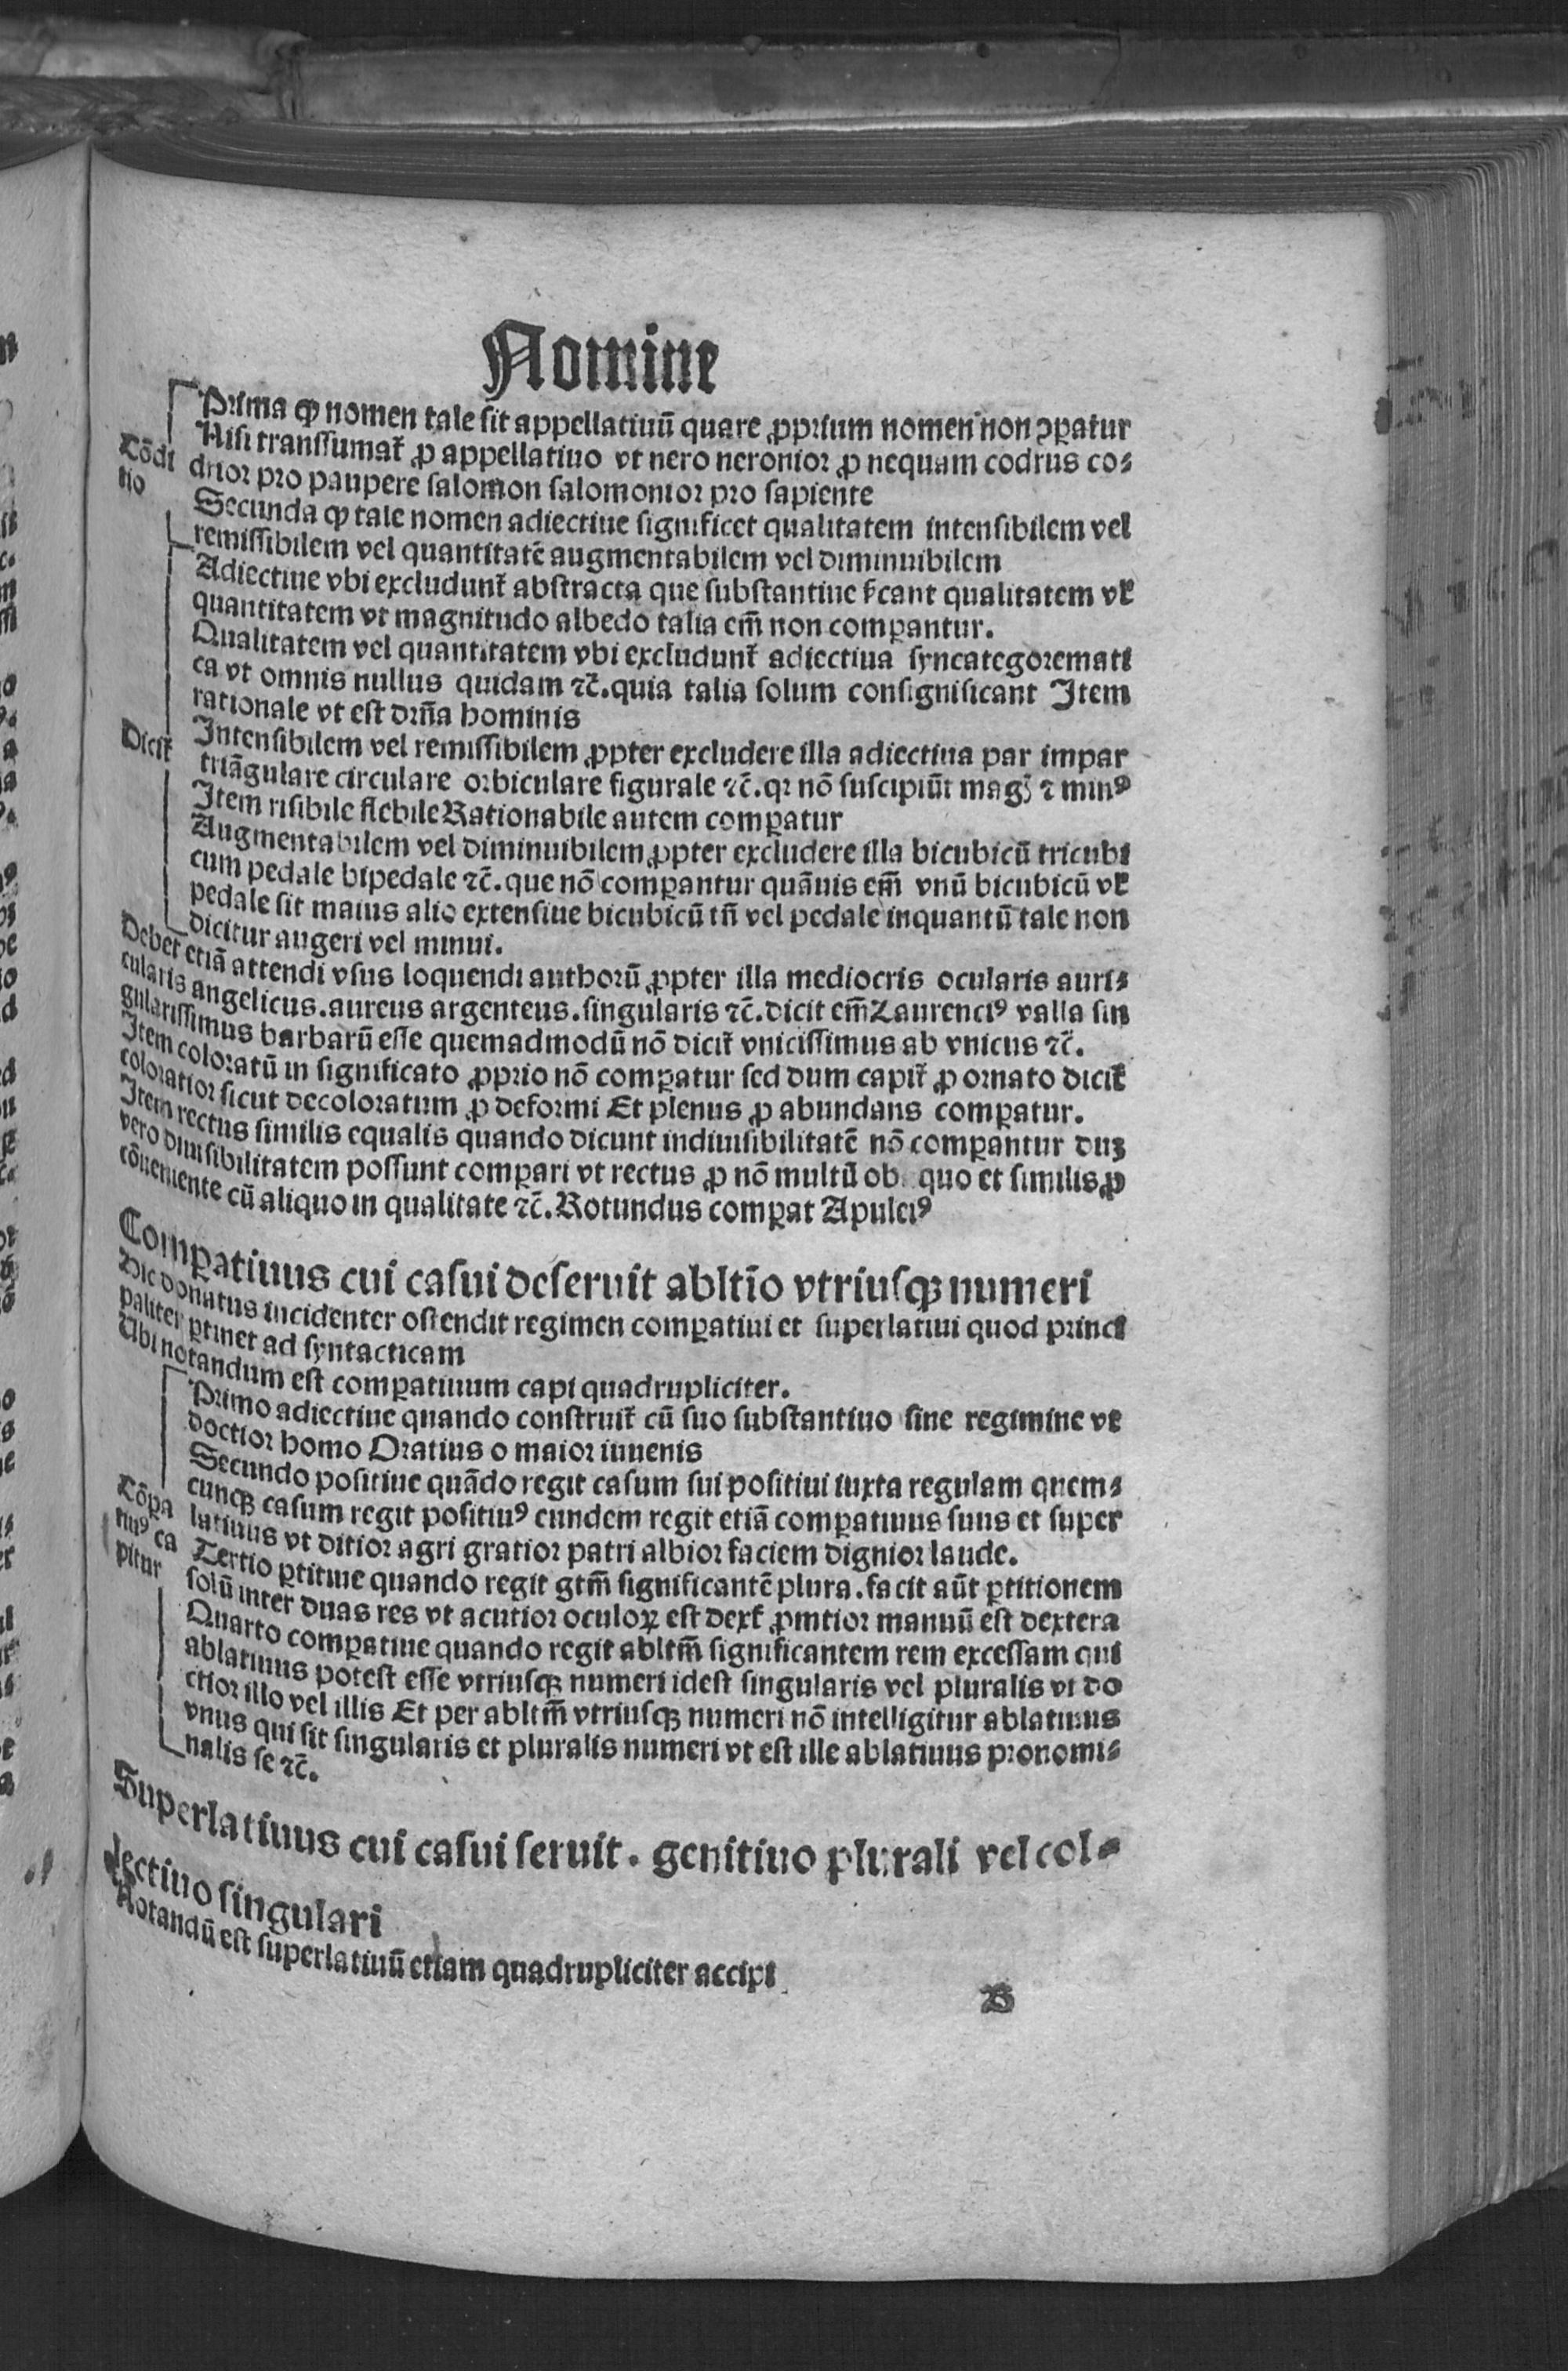 Nomine
Prima ꝙ nomen tale sit appellatiuū quare ꝓprium nomen non ꝯꝑatur
Nisi transsumat᷑ ꝓ appellatiuo vt nero neronior ꝓ nequam codrus co⸗
Cōdi
tio
drior pro paupere salomon salomonior pro sapiente
Secunda ꝙ tale nomen adiectiue significet qualitatem intensibilem vel
remissibilem vel quantitatē augmentabilem vel diminuibilem
Adiectiue vbi excludunt᷑ abstracta que substantiue s̄cant qualitatem vl̄
quantitatem vt magnitudo albedo talia em̄ non comꝑantur.
Qualitatem vel quantitatem vbi excludunt᷑ adiectiua syncategoremati
ca vt omnis nullus quidam ⁊c̄. quia talia solum consignificant Item
rationale vt est drn̄a hominis
Dicit᷑
Intensibilem vel remissibilem ꝓpter excludere illa adiectiua par impar
triāgulare circulare orbiculare figurale ⁊c̄. qr nō suscipiūt magꝭ ⁊ minꝰ
Item risibile flebile Rationabile autem comꝑatur
Augmentabilem vel diminuibilem ꝓpter excludere illa bicubicū tricubi
cum pedale bipedale ⁊c̄. que nō comꝑantur quāuis em̄ vnū bicubicū vl̄
pedale sit maius alio extensiue bicubicū tn̄ vel pedale inquantū tale non
dicitur augeri vel minui.
Debet etiā attendi vsus loquendi authorū ꝓpter illa mediocris ocularis auri⸗
cularis angelicus. aureus argenteus. singularis ⁊c̄. dicit em̄ Laurenciꝰ valla sin
gularissimus barbarū esse quemadmodū nō dicit᷑ vnicissimus ab vnicus ⁊c̄.
Item coloratū in significato ꝓprio nō comꝑatur sed dum capit᷑ ꝓ ornato dicit᷑
coloratior sicut decoloratum ꝓ deformi Et plenus ꝓ abundans comꝑatur.
Item rectus similis equalis quando dicunt indiuisibilitatē nō comꝑantur duꝫ
vero diuisibilitatem possunt compari vt rectus ꝓ nō multū ob quo et similis ꝓ
cōueniente cū aliquo in qualitate ⁊c̄. Rotundus comꝑat Apuleiꝰ
Comꝑatiuus cui casui deseruit abltīo vtriusqꝫ numeri
Hic donatus incidenter ostendit regimen comꝑatiui et superlatiui quod princi
paliter ꝑtinet ad syntacticam
Ubi notandum est comꝑatiuum capi quadrupliciter.
Primo adiectiue quando construit᷑ cū suo substantiuo sine regimine vt
doctior homo Oratius o maior iuuenis
Secundo positiue quādo regit casum sui positiui iuxta regulam quem⸗
cunqꝫ casum regit positiuꝰ eundem regit etiā comꝑatiuus suus et super
Cōpa
tiuꝰ ca
pitur
latiuus vt ditior agri gratior patri albior faciem dignior laude.
Tertio ꝑtitiue quando regit gtm̄ significantē plura. facit aūt ꝑtitionem
solū inter duas res vt acutior oculoꝝ est dext᷑ ꝓmtior manuū est dextera
Quarto comꝑatiue quando regit abltm̄ significantem rem excessam qui
ablatiuus potest esse vtriusqꝫ numeri idest singularis vel pluralis vt do
ctior illo vel illis Et per abltm̄ vtriusqꝫ numeri nō intelligitur ablatiuus
vnus qui sit singularis et pluralis numeri vt est ille ablatiuus pronomi⸗
nalis se ⁊c̄.
Superlatiuus cui casui seruit. genitiuo plurali vel col⸗
lectiuo singulari
Notandū est superlatiuū etiam quadrupliciter accipi
B